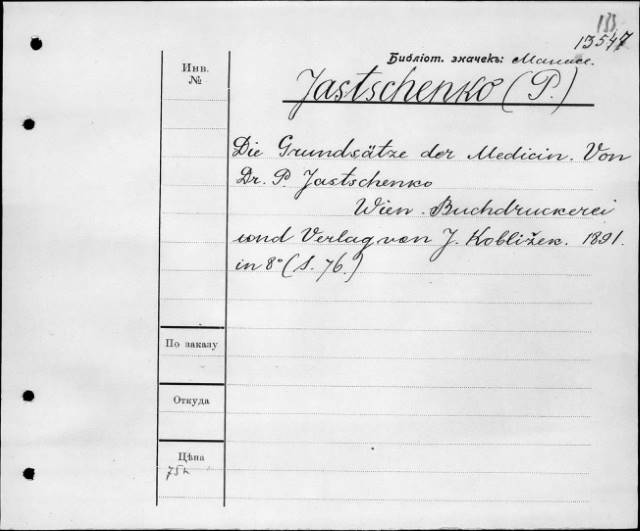 133
13547
Библіот. значекъ:
Инв.
№
Jastschenko (P.)
Die Grundsätze der Medicin. Von
Dr. P. Jastschenko
Wien. Buchdruckerei
und Verlag von J. Kobližek. 1891.
in 8° (S. 76.)
По заказу
Откуда
Цѣна
75к